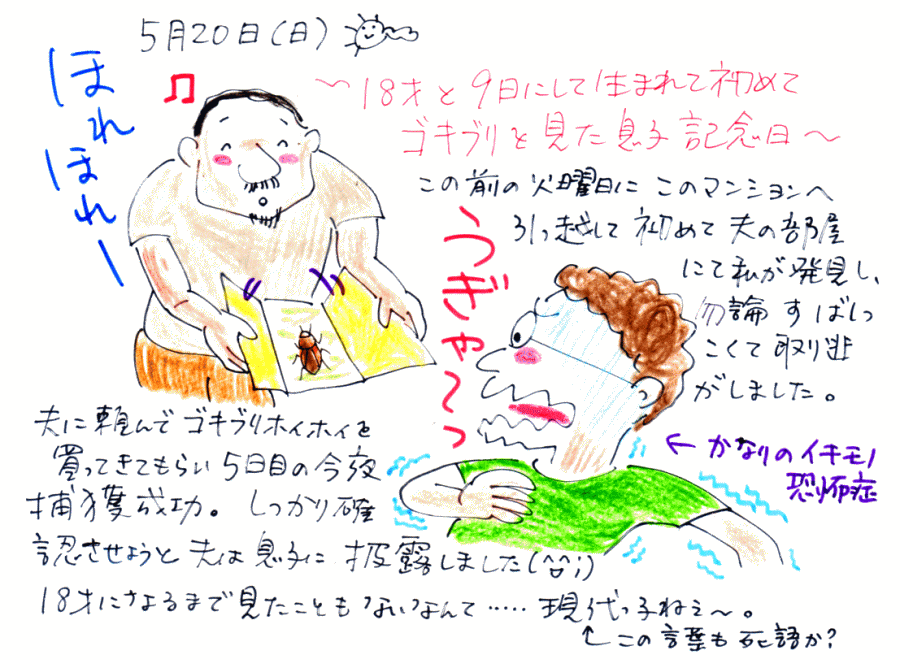 5月20日(日)
ほれほれー
〜18才と9日にして生まれて初めて
ゴキブリを見た息子記念日〜
この前の火曜日にこのマンションへ
引っ越して初めて夫の部屋
にて私が発見し、
勿論すばしっ
こくて取り逃
がしました。
うぎゃ〜っ
←かなりのイキモノ
恐怖症
夫に頼んでゴキブリホイホイを
買ってきてもらい5日目の今夜
捕獲成功。しっかり確
認させようと夫は息子に披露しました(^^;)
18才になるまで見たこともないなんて……現代っ子ねぇ〜。
↑この言葉も死語か?